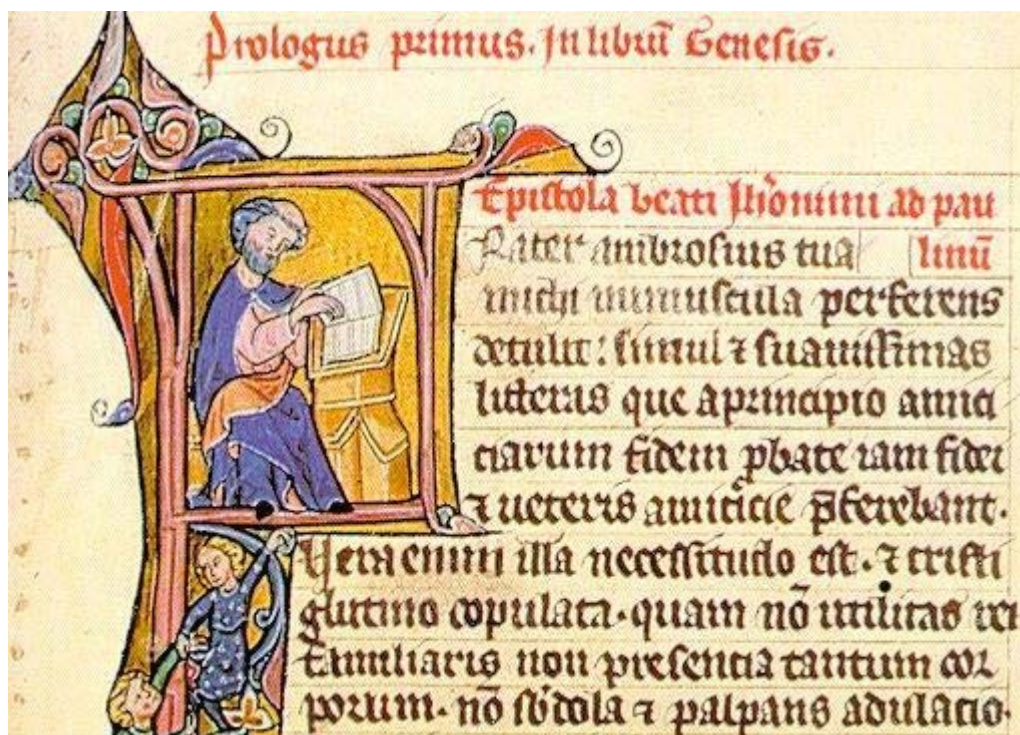 Prologus primus. In librū Genesis.
Epistola beati Ihōnimi ad pau
linū
Rater ambrosius tua
michi munuscula perferens
detulit: simul ⁊ suauissimas
litteras que a principio amici
ciarum fidem ꝓbate iam fidei
⁊ ueteris amicicie p̄ferebant.
Vera enim illa necessitudo est. ⁊ cristi
glutino copulata. quam nō utilitas rei
familiaris non presencia tantum cor
porum. nō sb̓dola ⁊ palpans adulatio.